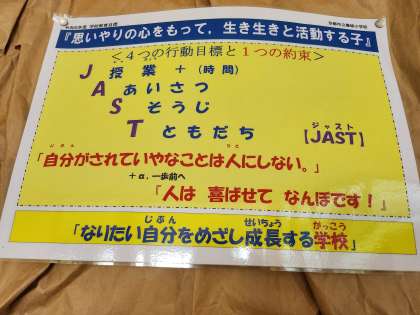 『思いやりの心をもって，生き生きと活動する子』
＜４つの行動目標と１つの約束＞
J 授業＋（時間）
A あいさつ
S そうじ
T ともだち
ジャスト
【JAST】
じぶん ひと
「自分がされていやなことは人にしない。」
＋α，一歩前へ
「人は 喜ばせて なんぼです！」
じぶん せいちょう がっこう
「なりたい自分をめざし成長する学校」